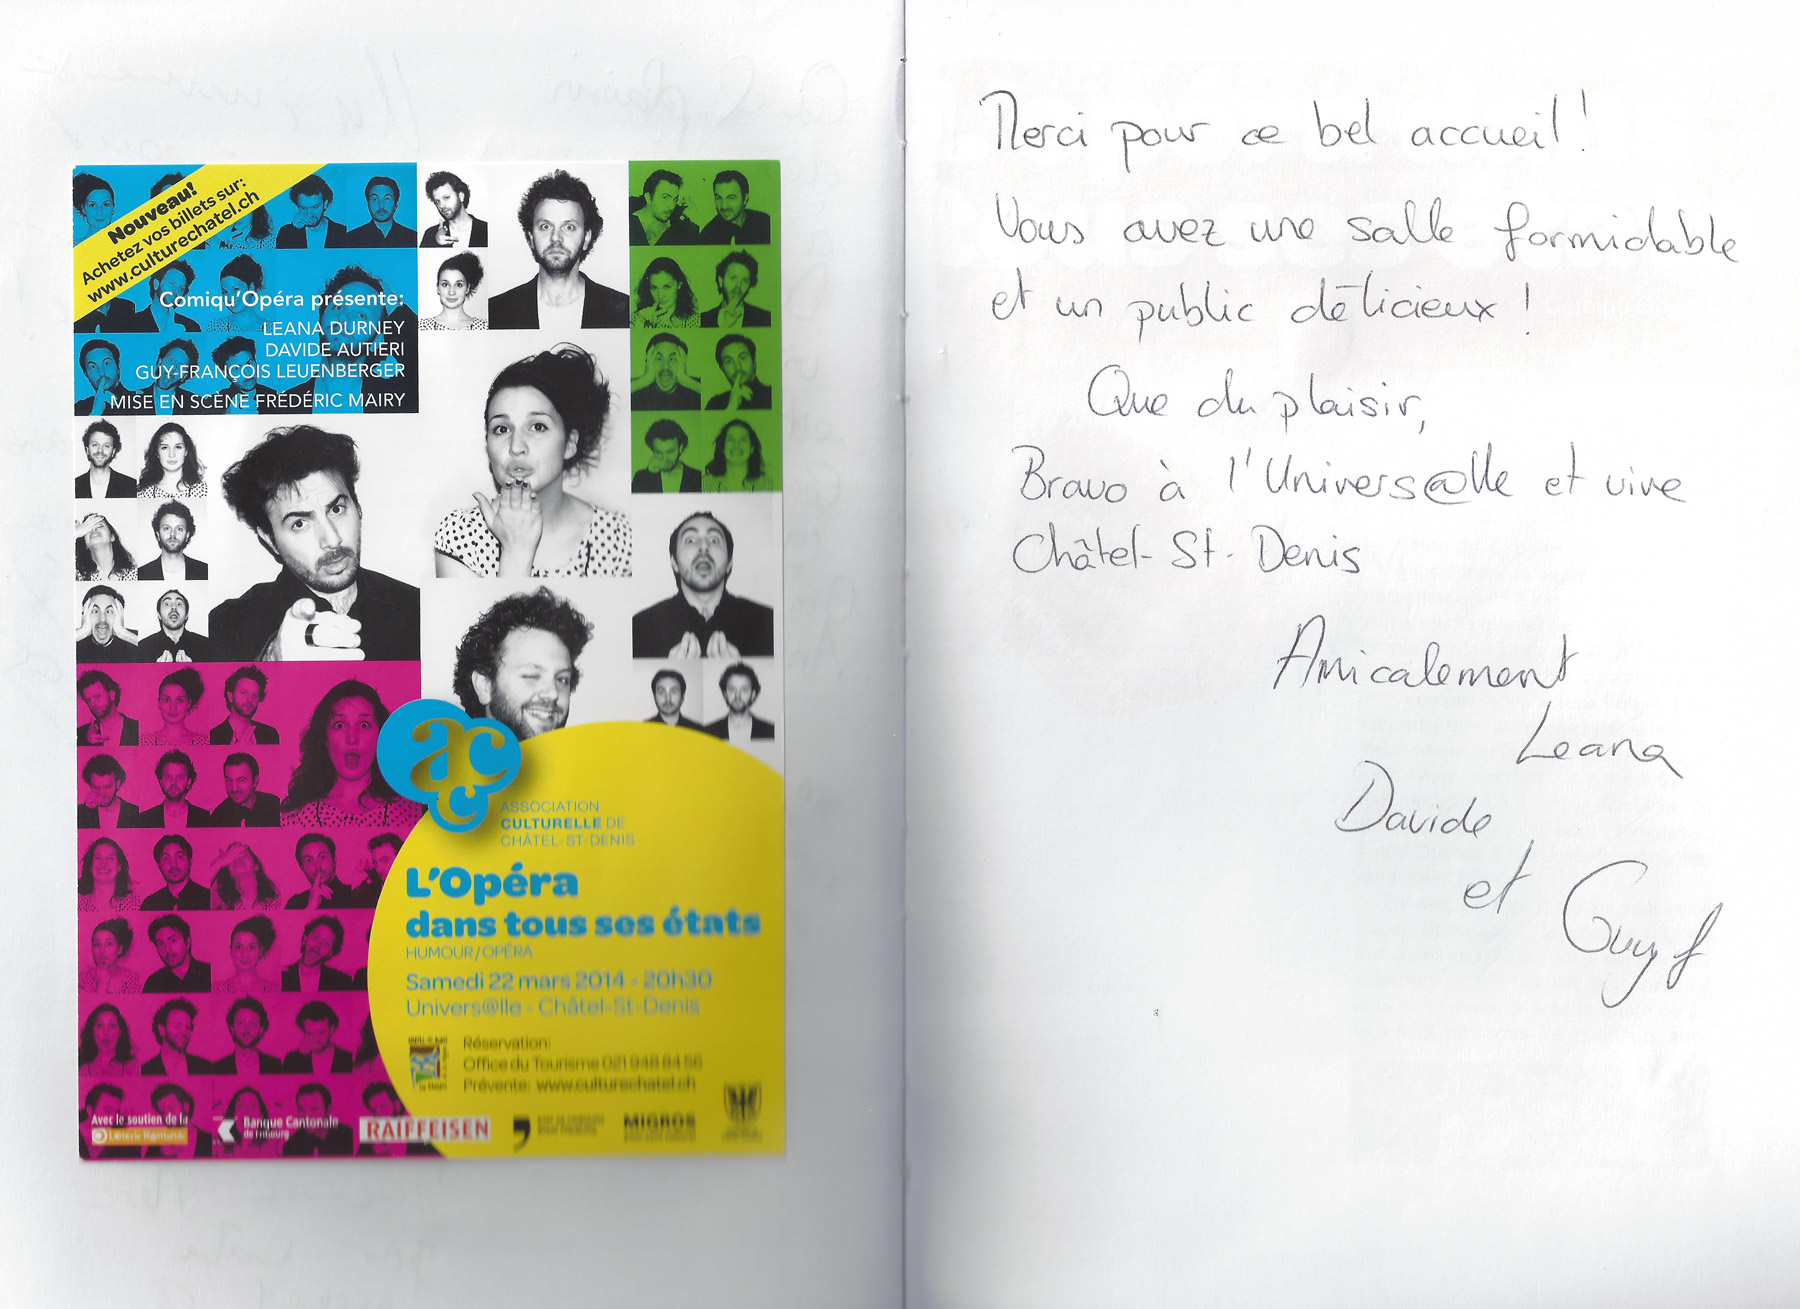 Nouveau!
Achetez vos billets sur:
www.culturechatel.ch
Comiqu'Opéra présente:
LEANA DURNEY
DAVIDE AUTIERI
GUY-FRANÇOIS LEUENBERGER
MISE EN SCÈNE FRÉDÉRIC MAIRY
acc
ASSOCIATION
CULTURELLE DE
CHÂTEL-ST-DENIS
L'Opéra
dans tous ses états
HUMOUR/OPÉRA
Samedi 22 mars 2014 - 20h30
Univers@lle - Châtel-St-Denis
Réservation:
Office du Tourisme 021 948 84 56
Prévente: www.culturechatel.ch
Avec le soutien de la
Loterie Romande
Banque Cantonale
de Fribourg
RAIFFEISEN
MIGROS
Merci pour ce bel accueil!
Vous avez une salle formidable
et un public délicieux!
Que du plaisir,
Bravo à l'Univers@lle et vive
Châtel-St-Denis
Amicalement
Leana
Davide
et Guyf